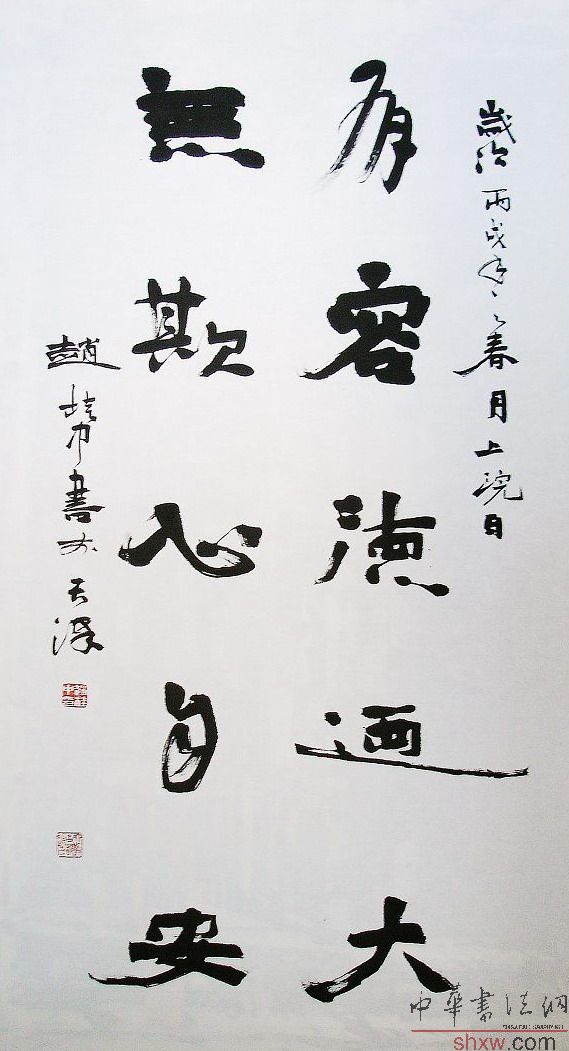 歲次丙戌年之春月上浣日
有容德迺大
無欺心自安
趙培中書於天
中華書法網
shxw.com